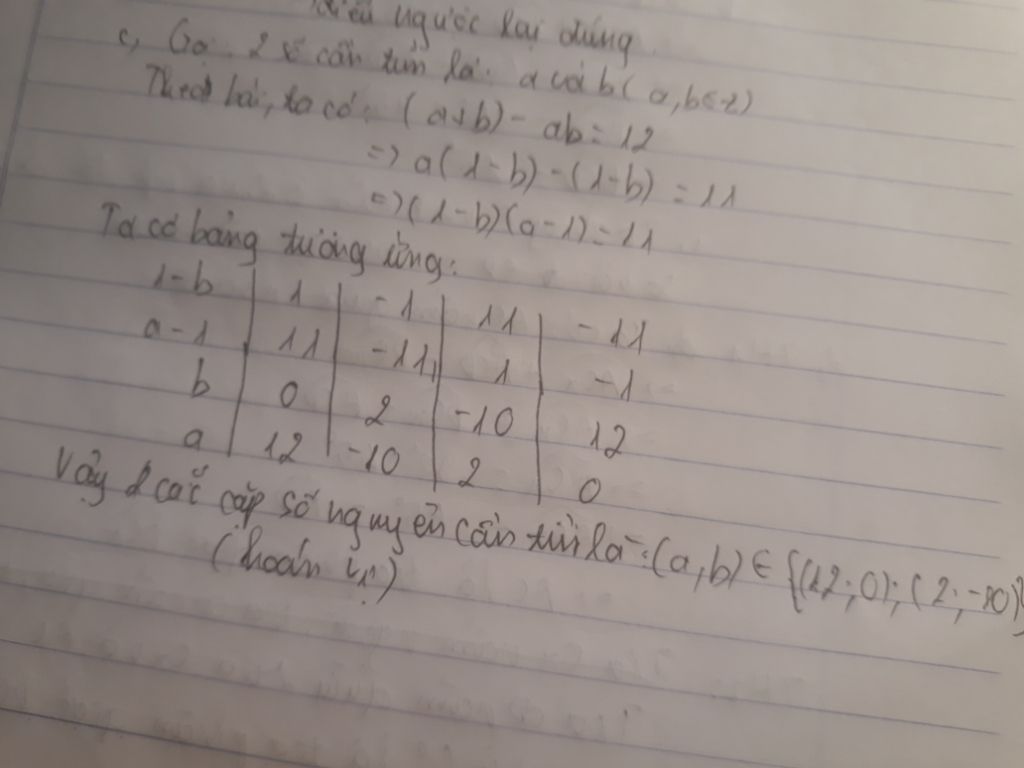 ngược lại đúng
c, Gọi 2 số cần tìm là: a và b (a,b∈Z)
Theo bài, ta có: (a+b) - ab = 12
=> a(1-b) - (1-b) = 11
=> (1-b)(a-1) = 11
Ta có bảng tương ứng:
1-b | 1 | -1 | 11 | -11
a-1 | 11 | -11 | 1 | -1
b | 0 | 2 | -10 | 12
a | 12 | -10 | 2 | 0
Vậy các cặp số nguyên cần tìm là: (a,b) ∈ {(12;0);(2;-10)}
(hoán vị)